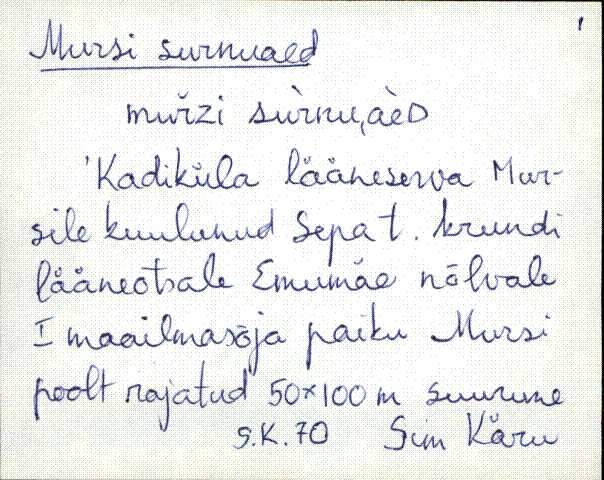 Mursi surnuaed
murzi sùrnu,àeD
'Kadiküla lääneserva Mur-
sile kuulunud Sepa t. krundi
lääneotsale Emumäe nõlvale
I maailmasõja paiku Mursi
poolt rajatud 50×100 m suurune
S.K.70 Sim Käru